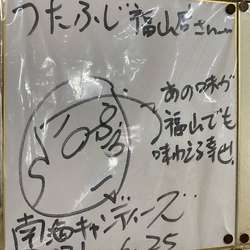 つたふじ 福山店さんへ
あの味が
福山でも
味わえる幸せ。
南海キャンディーズ